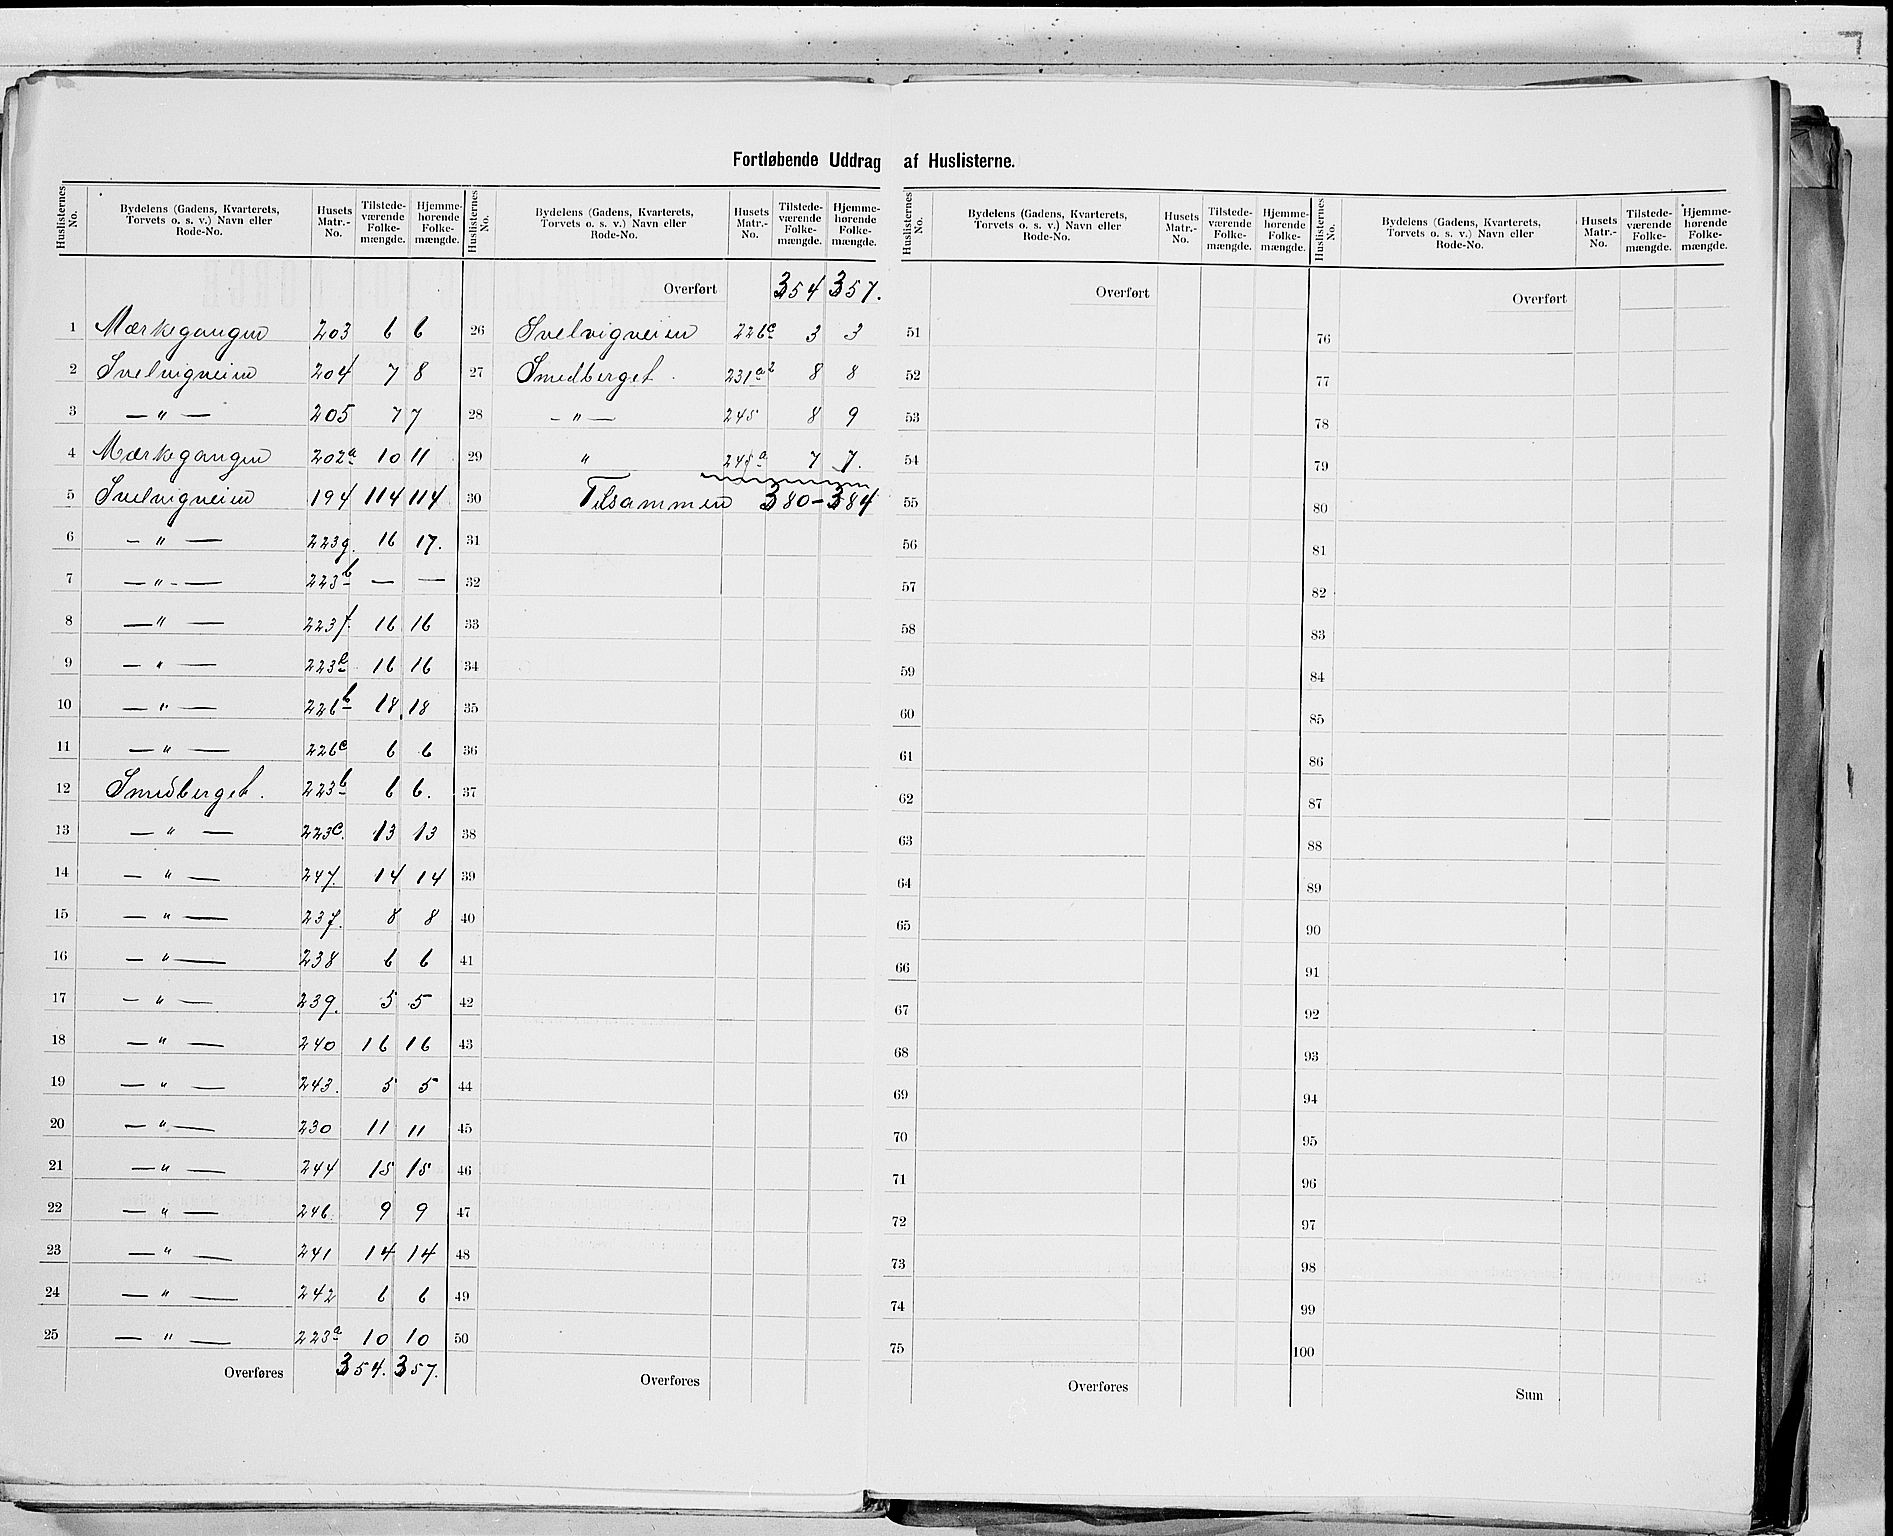 Fortløbende Uddrag af Huslisterne.
Huslisternes No. | Bydelens (Gadens, Kvarterets, Torvets o. s. v.) Navn eller Rode-No. | Husets Matr.-No. | Tilstedeværende Folkemængde. | Hjemmehørende Folkemængde.
1 Mærkegangen 203 6 6
2 Svelvigveien 204 7 8
3 — " — 205 7 7
4 Mærkegangen 202a 10 11
5 Svelvigveien 194 114 114
6 — " — 223g. 16 17.
7 — " — 223b — —
8 — " — 223f. 16 16
9 — " — 223e 16 16
10 — " — 226b 18 18
11 — " — 226c 6 6
12 Smedberget. 223b 6 6.
13 — " — 223c. 13 13
14 — " — 247. 14 14
15 — " — 237. 8 8
16 — " — 238 6 6
17 — " — 239. 5 5
18 — " — 240 16 16
19 — " — 243. 5 5
20 — " — 230 11 11
21 — " — 244 15 15
22 — " — 246 9 9
23 — " — 241 14 14
24 — " — 242 6 6
25 — " — 223a 10 10
Overføres 354. 357.
Huslisternes No. | Bydelens (Gadens, Kvarterets, Torvets o. s. v.) Navn eller Rode-No. | Husets Matr.-No. | Tilstedeværende Folkemængde. | Hjemmehørende Folkemængde.
Overført 354 357.
26 Svelvigveien 226c 3 3
27 Smedberget. 231a2 8 8
28 — " — 245 8 9
29 " 245a 7 7.
30 Tilsammen 380 – 384
31
32
33
34
35
36
37
38
39
40
41
42
43
44
45
46
47
48
49
50
Overføres
Huslisternes No. | Bydelens (Gadens, Kvarterets, Torvets o. s. v.) Navn eller Rode-No. | Husets Matr.-No. | Tilstedeværende Folkemængde. | Hjemmehørende Folkemængde.
Overført
51
52
53
54
55
56
57
58
59
60
61
62
63
64
65
66
67
68
69
70
71
72
73
74
75
Overføres
Huslisternes No. | Bydelens (Gadens, Kvarterets, Torvets o. s. v.) Navn eller Rode-No. | Husets Matr.-No. | Tilstedeværende Folkemængde. | Hjemmehørende Folkemængde.
Overført
76
77
78
79
80
81
82
83
84
85
86
87
88
89
90
91
92
93
94
95
96
97
98
99
100
Sum